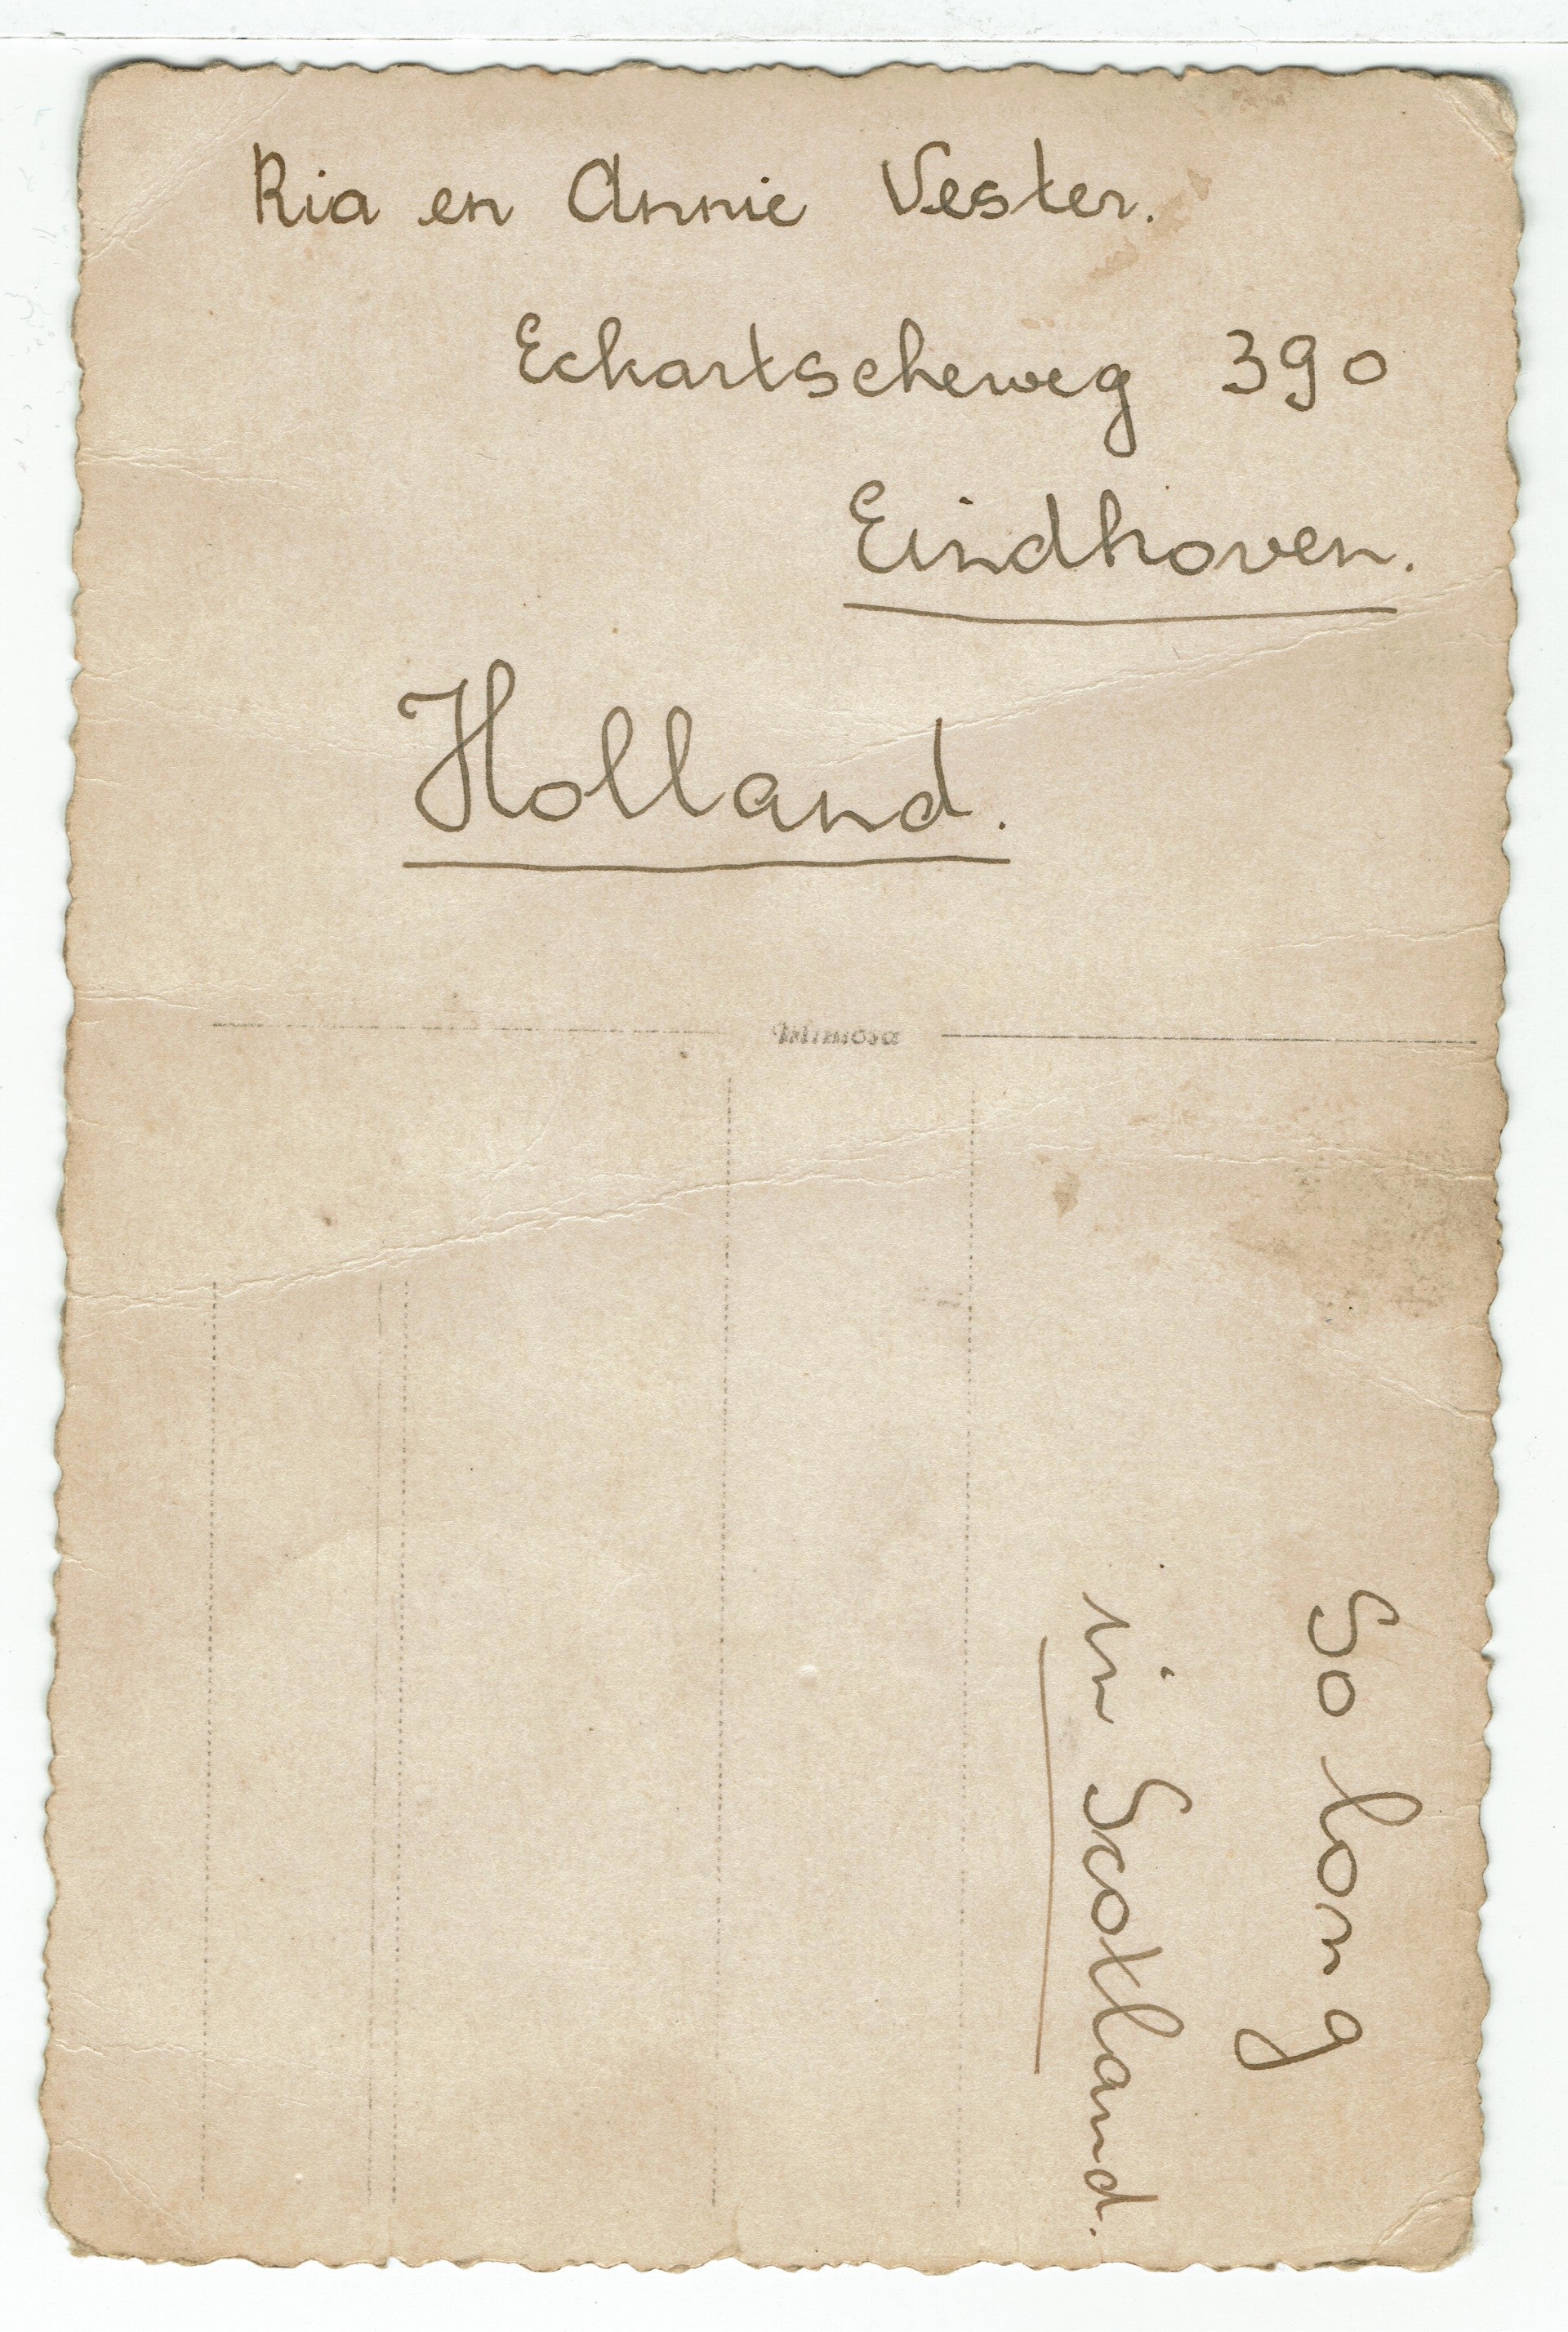 Ria en Annie Vester.
Eckartscheweg 390
Eindhoven.
Holland.
Mimosa
So long
in Scotland.